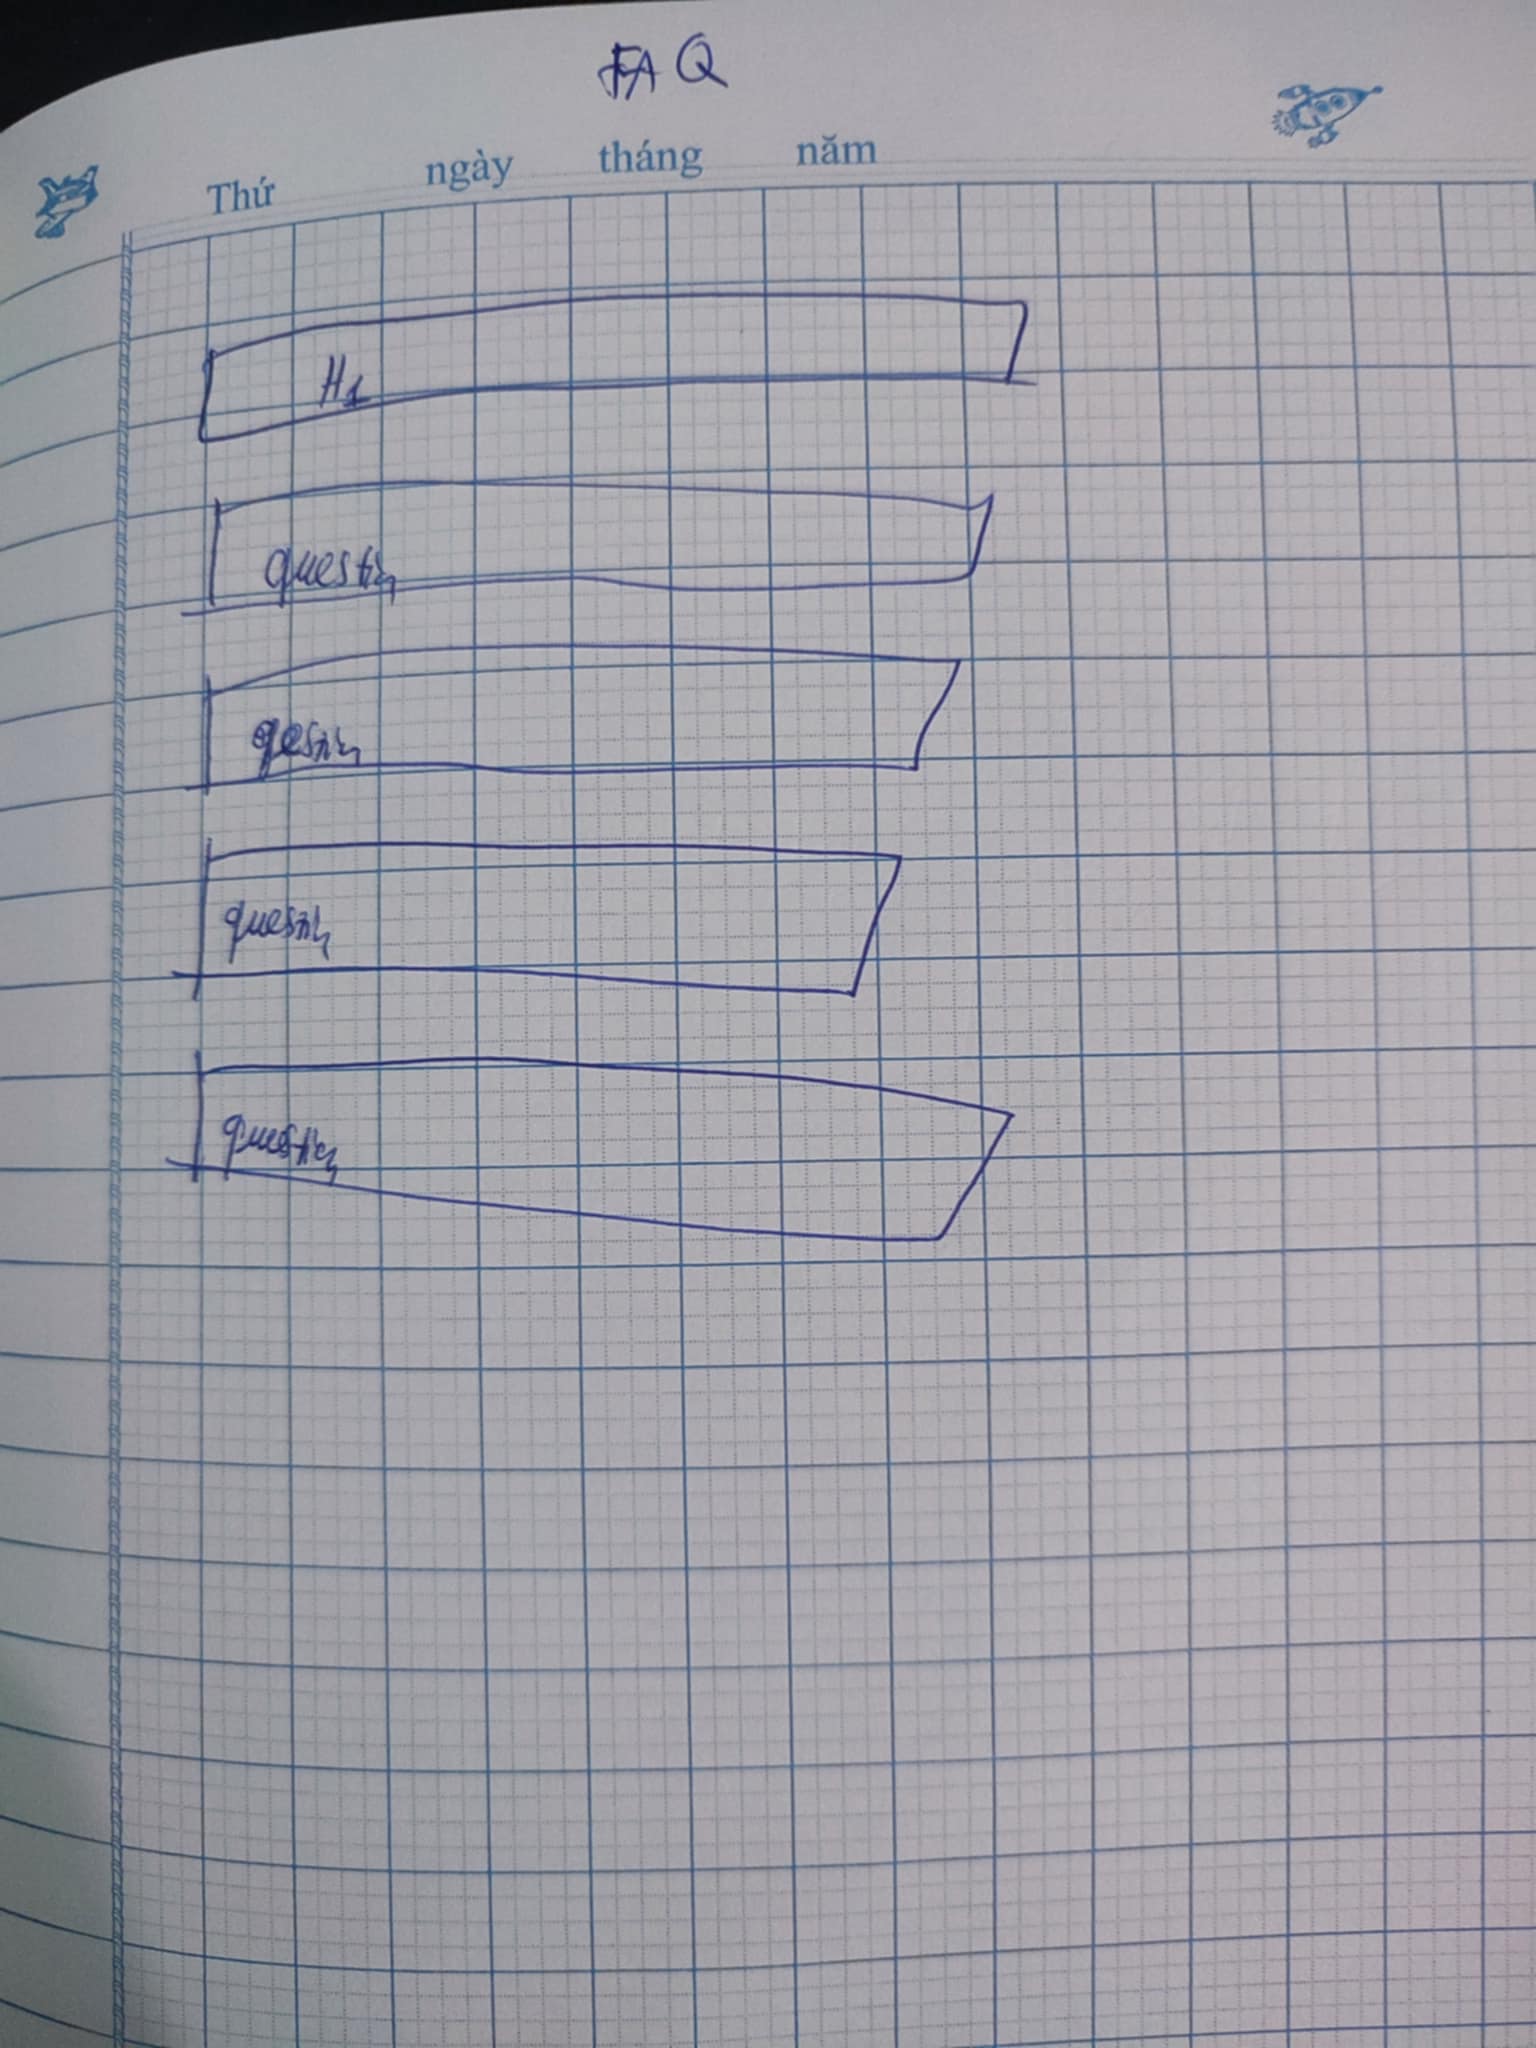 FAQ
Thứ ngày tháng năm
H1
question
qestion
question
question